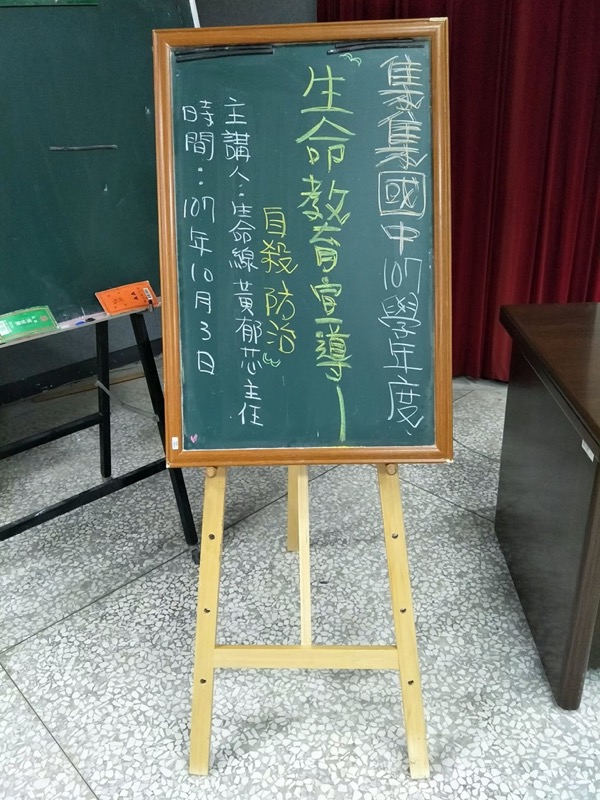 集集國中107學年度
"生命教育宣導—
自殺防治"
主講人:生命線黃郁芯主任
時間:107年10月3日